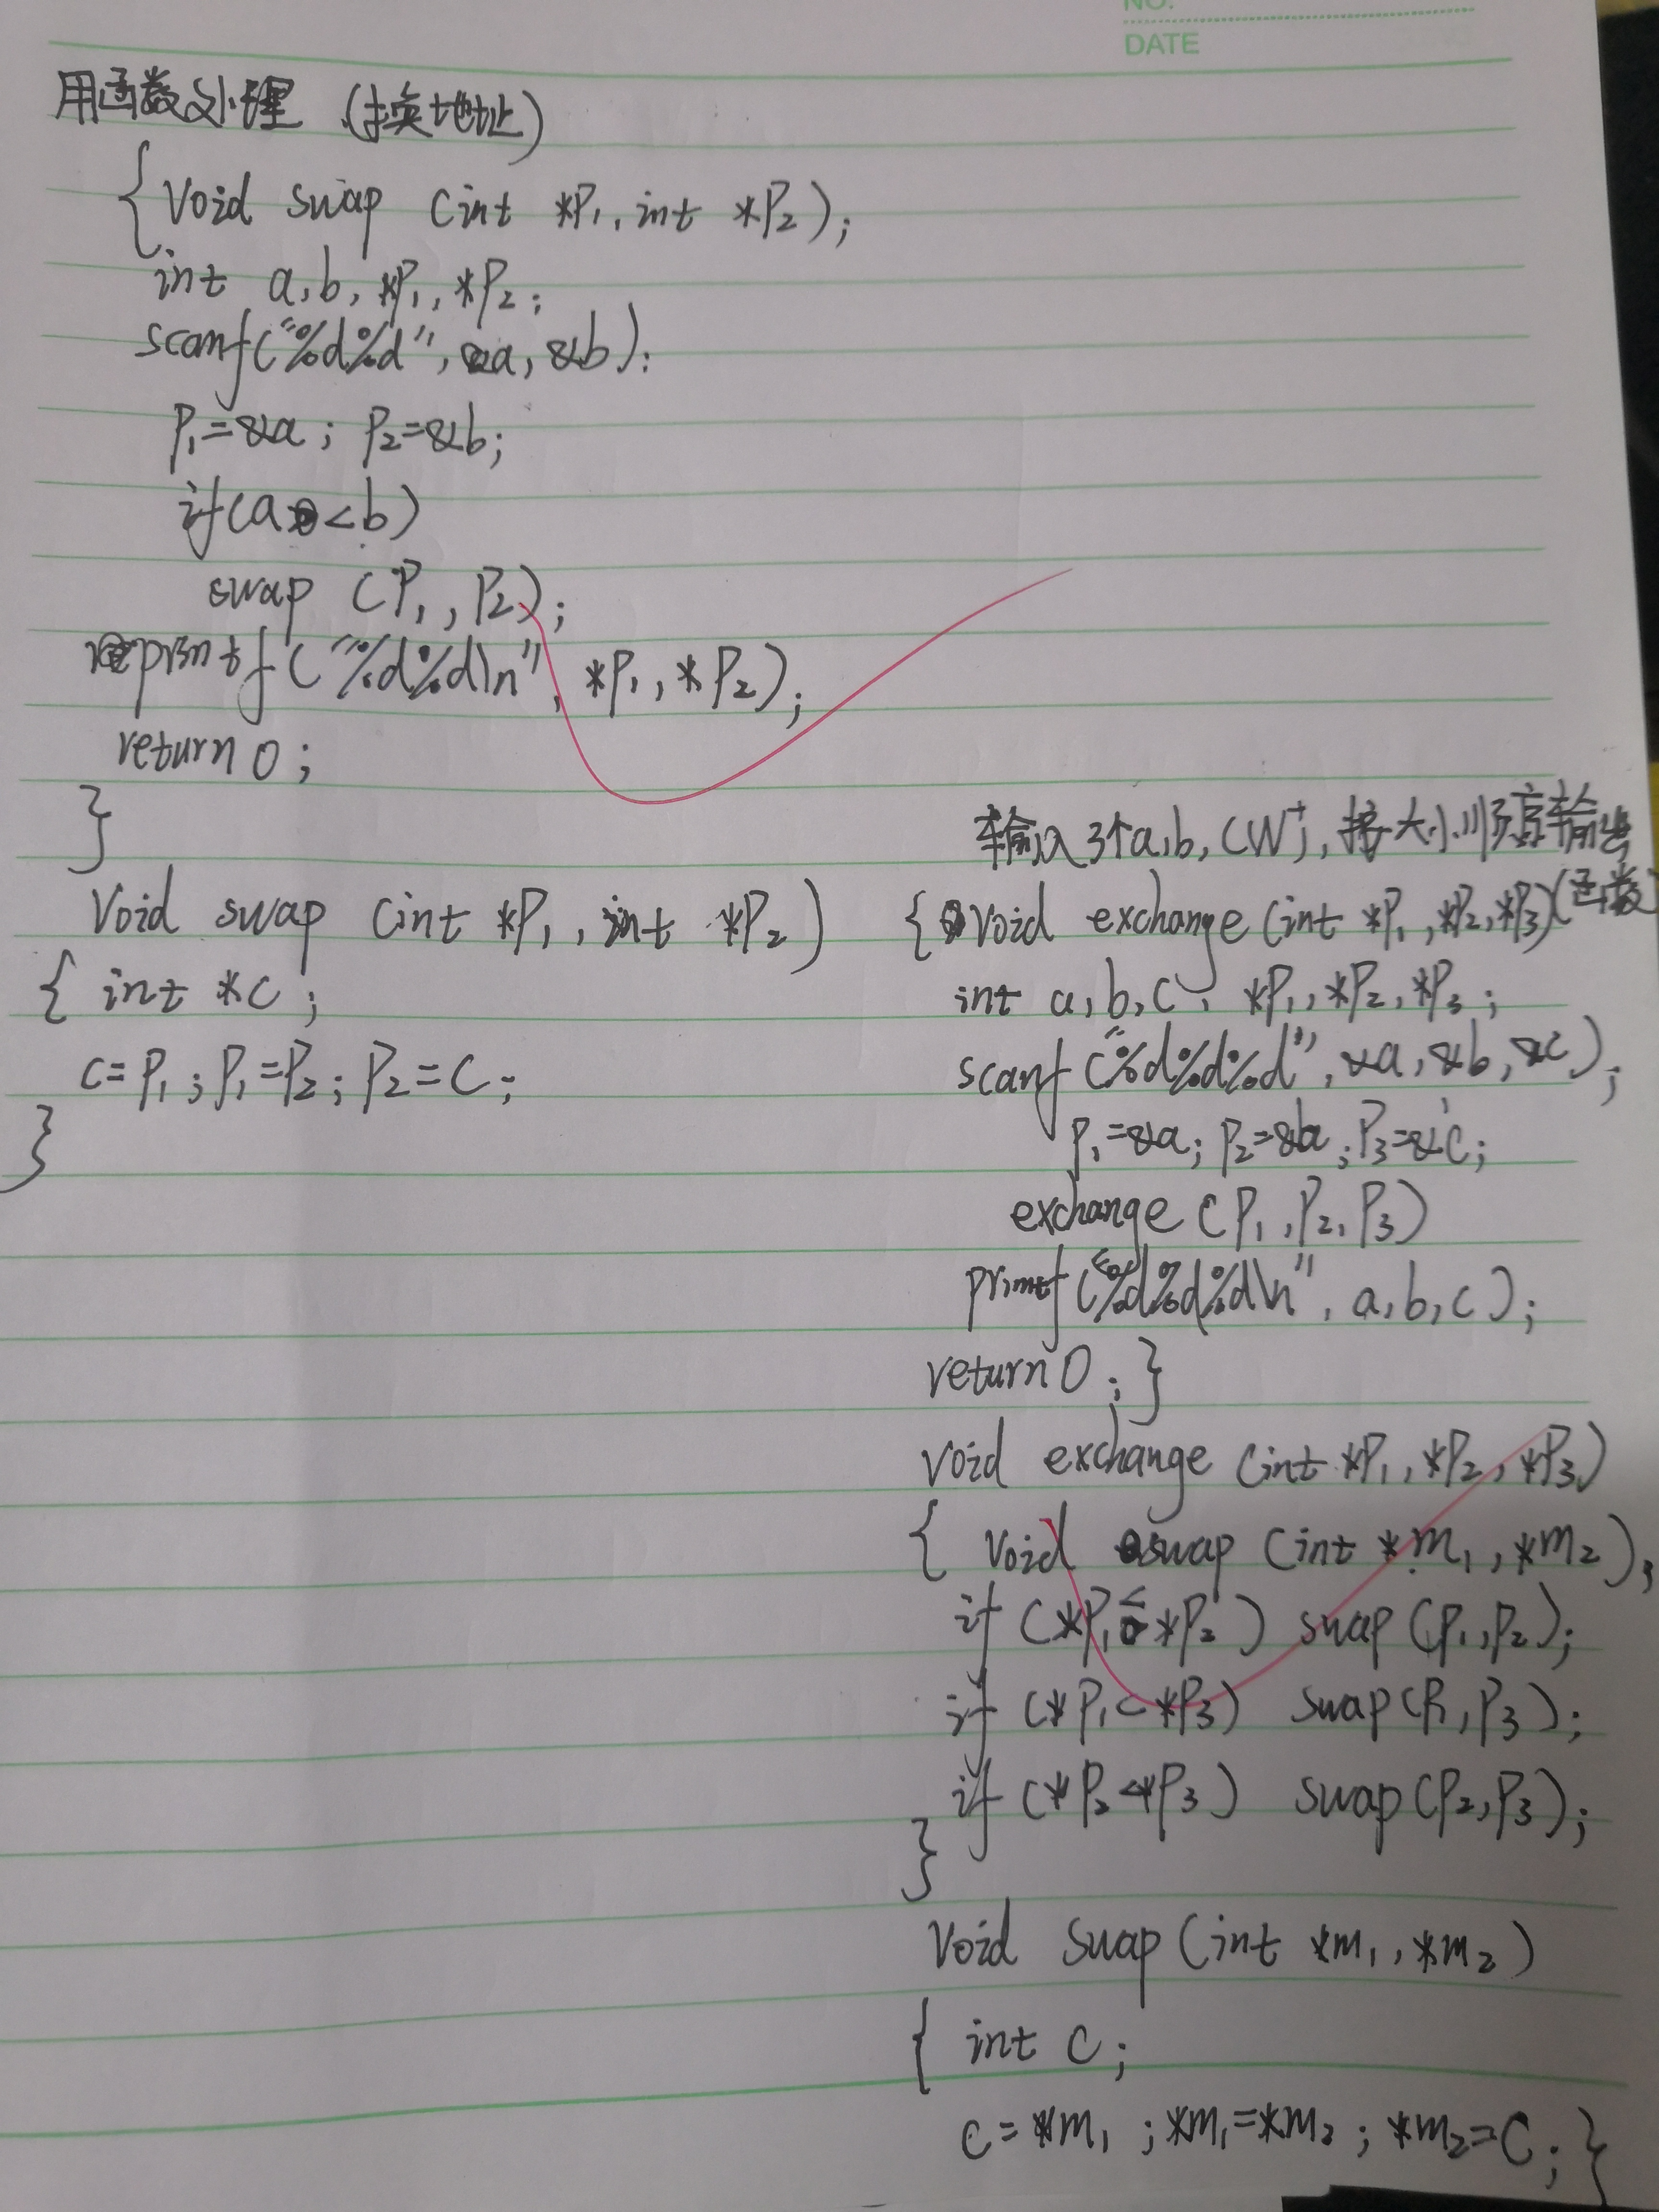 NO.
DATE
用函数处理 (换地址)
{ Void swap (int *P1, int *P2);
int a, b, *P1, *P2;
scanf("%d%d", &a, &b);
P1=&a; P2=&b;
if(a<b)
swap (P1, P2);
printf("%d%d\n", *P1, *P2);
return 0;
}
Void swap (int *P1, int *P2)
{ int *c;
c=P1; P1=P2; P2=c;
}
输入3个a,b,c 按大小顺序输出
(函数)
{ void exchange(int *P1, *P2, *P3)
int a, b, c, *P1, *P2, *P3;
scanf("%d%d%d", &a, &b, &c);
P1=&a; P2=&b; P3=&c;
exchange (P1, P2, P3)
printf("%d%d%d\n", a, b, c);
return 0; }
void exchange (int *P1, *P2, *P3)
{ void swap (int *m1, *m2);
if (*P1<*P2) swap (P1, P2);
if (*P1<*P3) swap(P1, P3);
if (*P2<*P3) swap(P2, P3);
}
Void swap(int *m1, *m2)
{ int c;
c=*m1; *m1=*m2; *m2=c; }